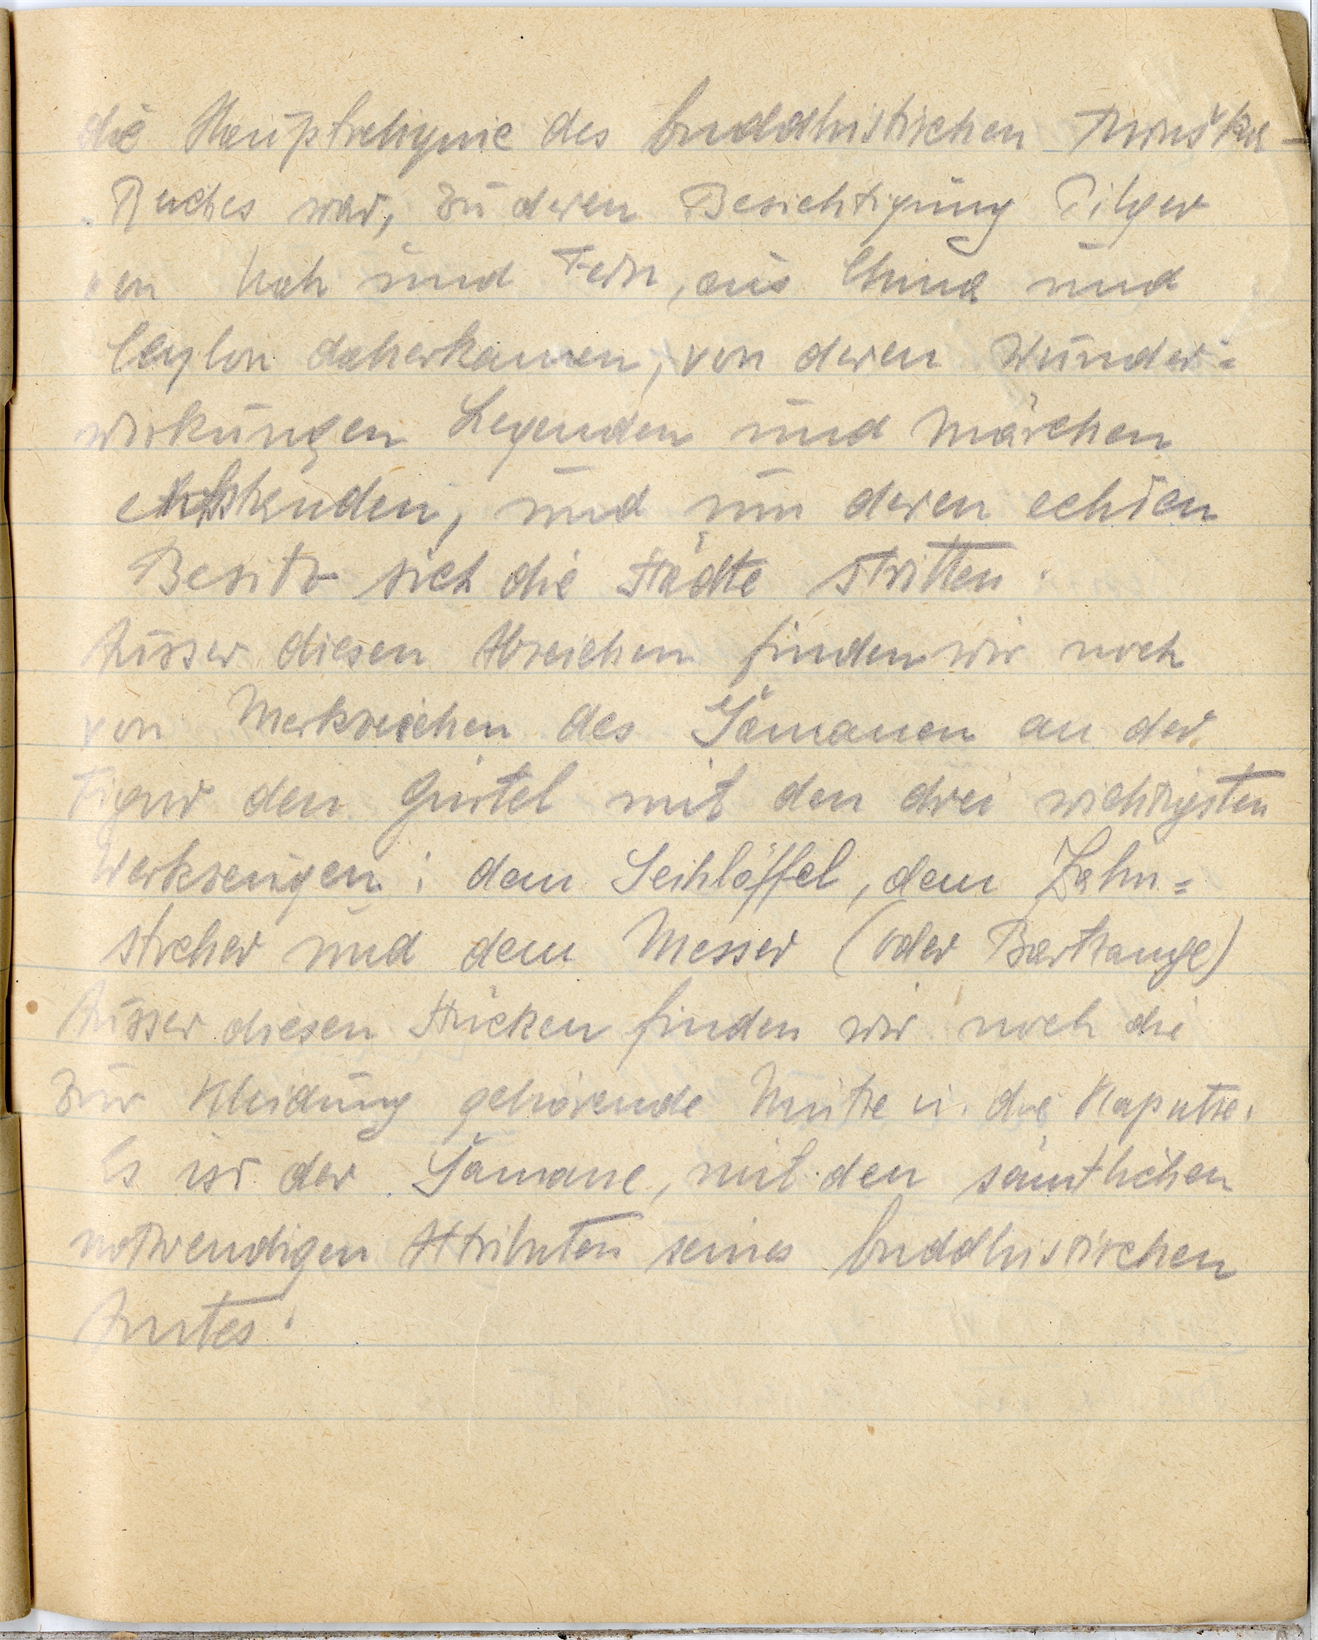 die Hauptreliquie des buddhistischen Turuška-
Reiches war, zu deren Besichtigung Pilger
von Nah und Fern, aus China und
Ceylon daherkamen, von deren Wunder=
wirkungen Legenden und Märchen
entstanden, und um deren echten
Besitz sich die Städte stritten.
Ausser diesen Abzeichen finden wir noch
von Merkzeichen des Šamanen an der
Figur den Gürtel mit den drei wichtigsten
Werkzeugen: dem Seihlöffel, dem Zahn=
stocher und dem Messer (oder Bartzange)
Ausser diesen Stücken finden wir noch die
zur Kleidung gehörende Mütze u. die Kaputze.
Es ist der Šamane, mit den sämtlichen
notwendigen Attributen seines buddhistischen
Amtes.